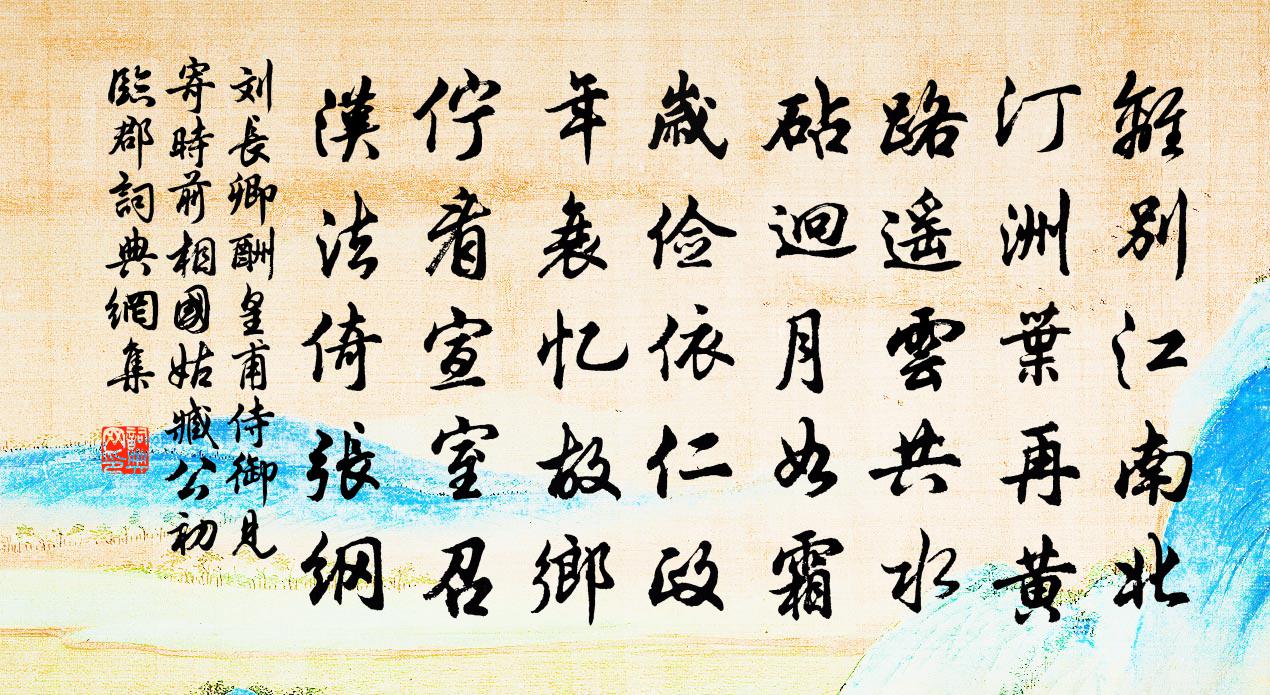 離別江南北
汀洲葉再黃
路遥雲共水
砧迥月如霜
歲俭依仁政
年衰忆故鄉
佇看宣室召
漢法倚張綱
刘長卿酬皇甫侍御見
寄時前相國姑臧公初
臨郡詞典網集